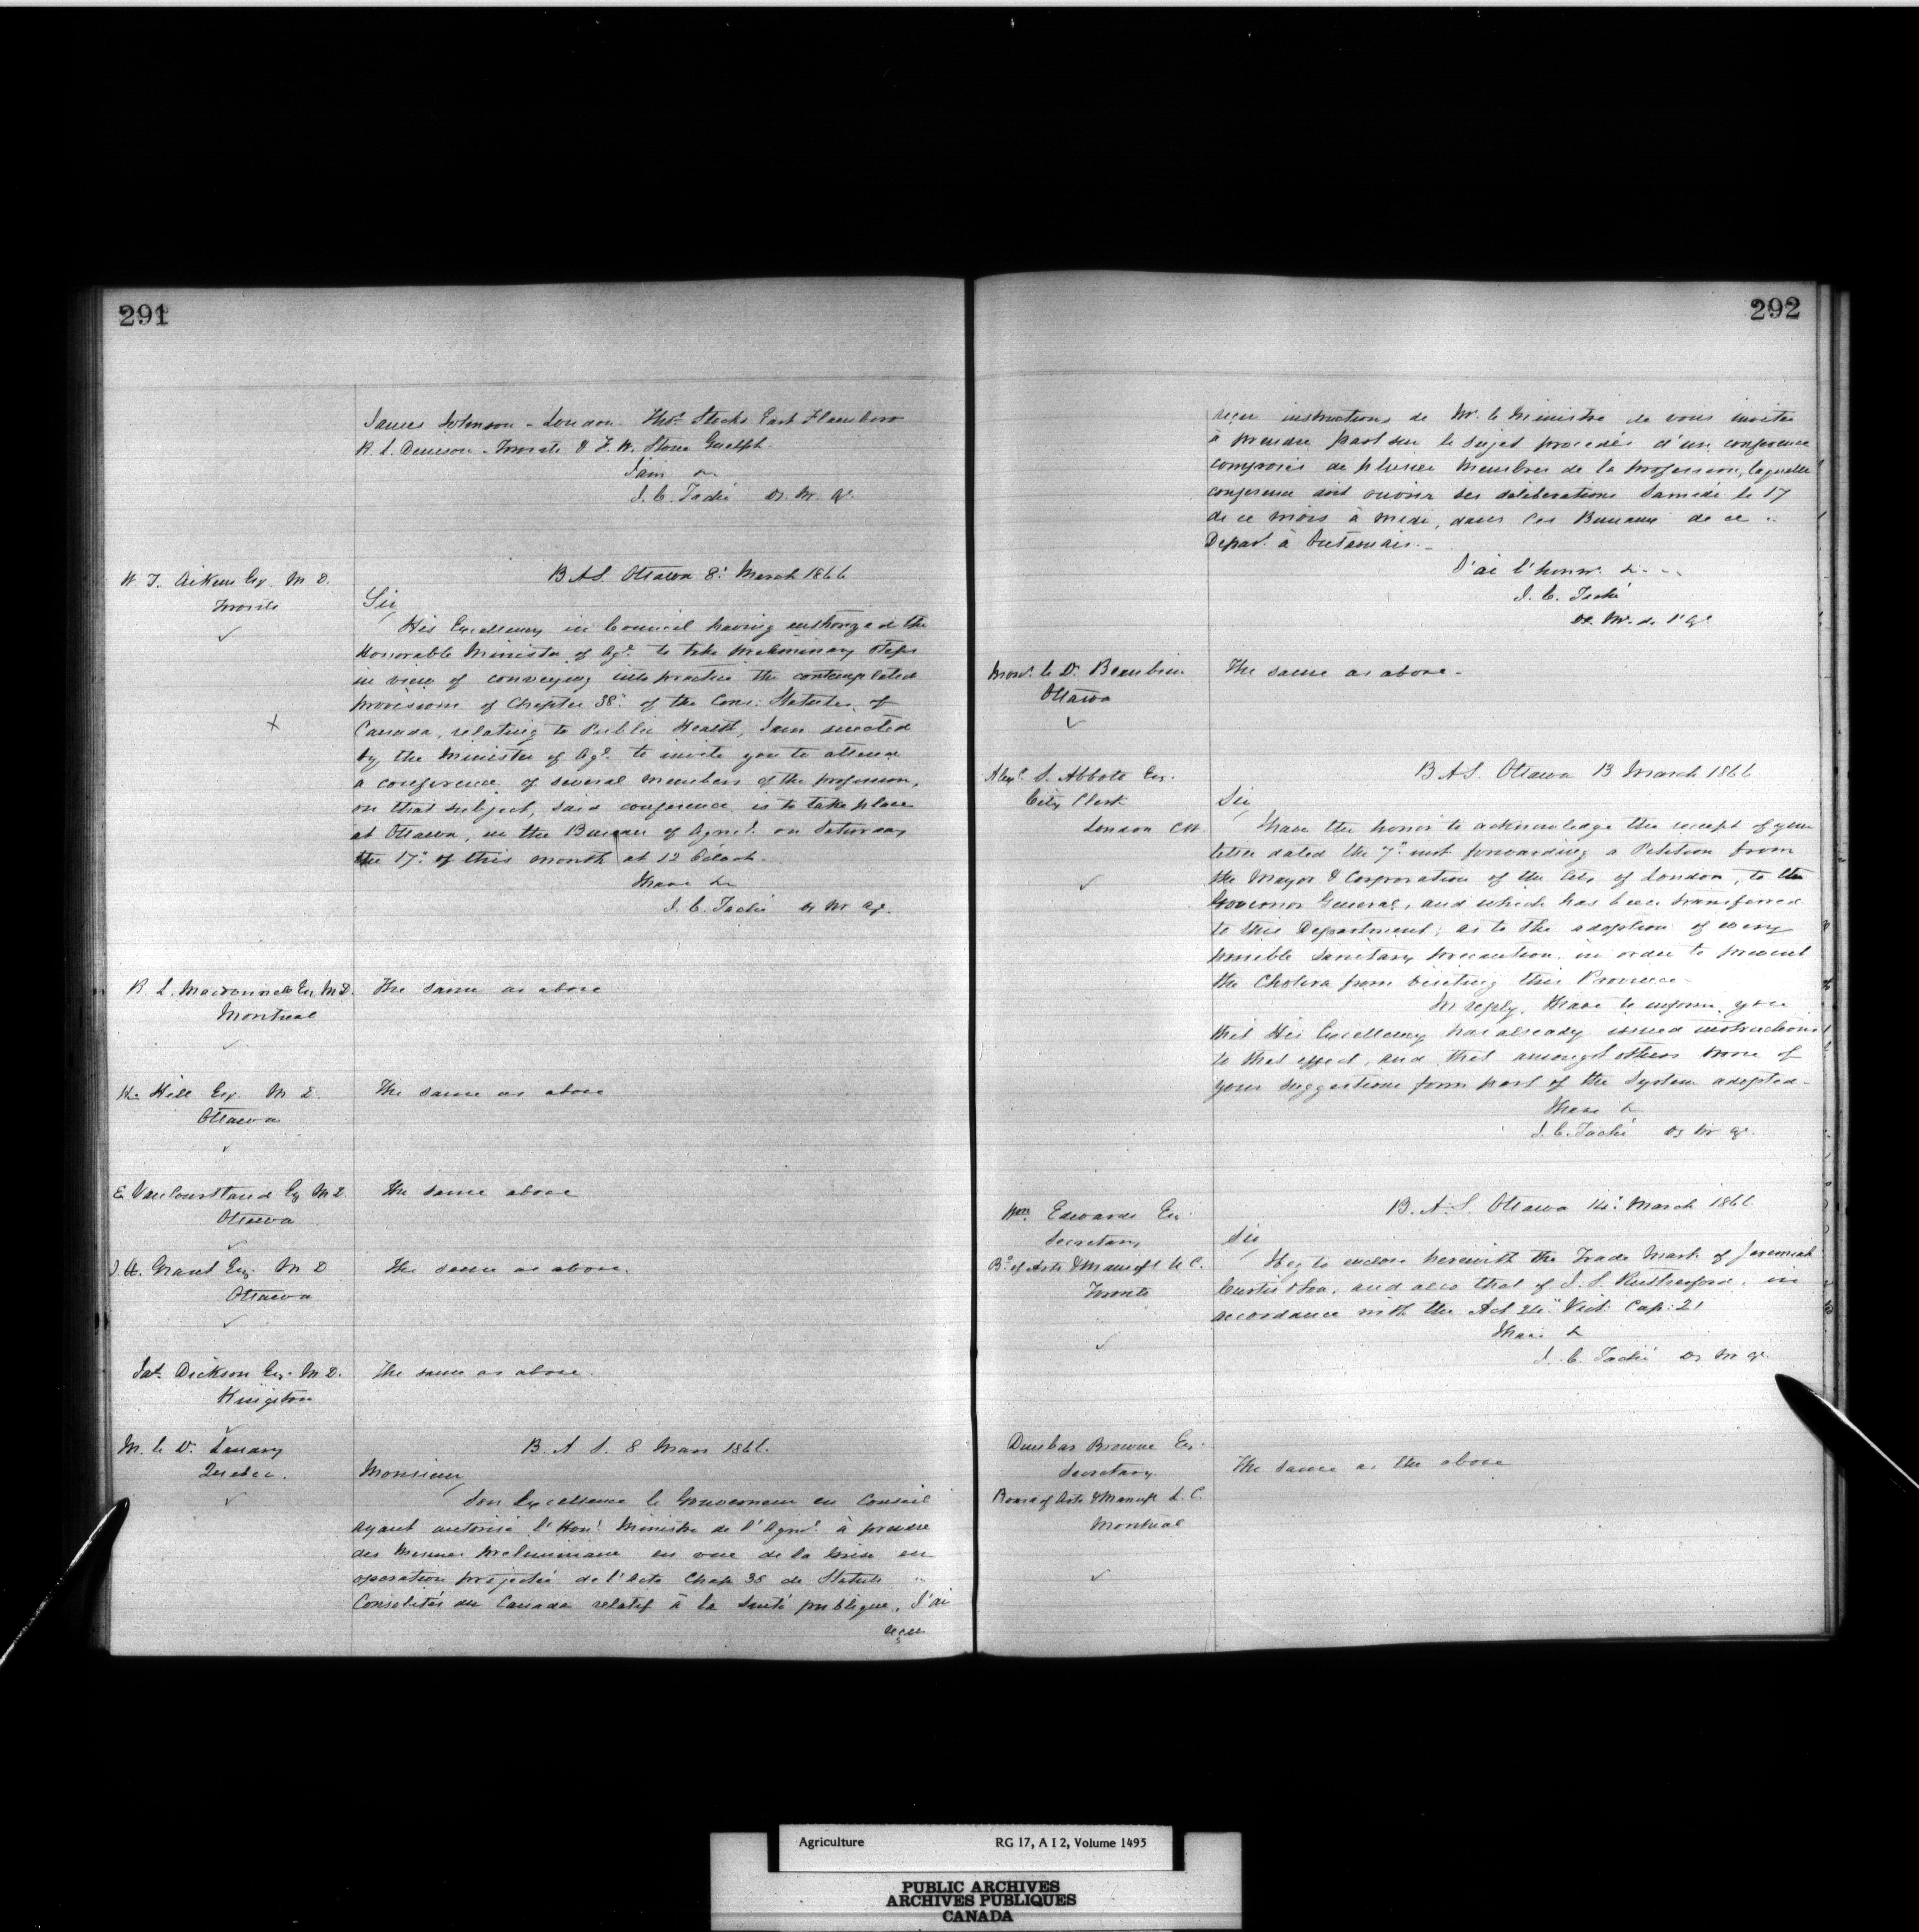 291
James Johnson - London Thos. Stocks East Flamboro
R. L. Denison - Toronto & F. W. Stone Guelph.
I am &c
J. C. Taché Dy. M. Ag.
W. T. Aikens Esq. M D.
Toronto
B A S. Ottawa 8: March 1866
Sir
His Excellency in Council having authorized the
Honorable Minister of Agr. to take preliminary steps
in view of conveying into practice the contemplated
provisions of Chapter 38: of the Cons: Statutes of
Canada, relating to Public Health, I am directed
by the Minister of Agr. to invite you to attend
a conference of several members of the profession,
on that subject, said conference is to take place
at Ottawa, in the Bureau of Agricl. on Saturday
the 17" of this month at 12 O'clock.
I have &c
J. C. Taché Dy M Ag.
R. L. Macdonnell Esq M D. The same as above
Montreal
H. Hill Esq. M D. The same as above
Ottawa
E. VanCourtland Esq M D The same above
Ottawa
J. A. Grant Esq. M D The same as above.
Ottawa
Jas. Dickson Esq. M D. The same as above.
Kingston
M. le Dr. Landry
Quebec.
B. A S. 8 Mars 1866.
Monsieur
Son Excellence le Gouverneur en Conseil
ayant autorisé l'Honl. Ministre de l'Agrre. à prendre
des mesures préliminaires en vue de la mise en
opération projetée de l'Acte Chap 38 de Statuts
Consolidés du Canada relatif à la Santé publique, J'ai
reçu
292
reçu instructions de Mr. le Ministre de vous inviter
à prendre part sur le sujet procédés d'un conférence
composée de plusieurs membres de la profession, laquelle
conférence doit ouvrir ses délibérations Samedi le 17
de ce mois à midi, dans les Bureaux de ce
Depart. à Outaouais.
J'ai l'honnr. &
J. C. Taché
Dt. M. de l'Ag.
Monsr. le Dr. Beaubien The same as above.
Ottawa
Alexr. S. Abbott Esq.
City Clerk
London C W.
B A S. Ottawa 13 March 1866
Sir
I have the honor to acknowledge the receipt of your
letter dated the 7" inst forwarding a Petition from
the Mayor & Corporation of the City of London, to the
Governor General, and which has been transferred
to this Department; as to the adoption of every
possible Sanitary precaution, in order to prevent
the Cholera from visiting this Province.
In reply, I have to inform you
that His Excellency has already issued instructions
to that effect, and that amongst others some of
your suggestions form part of the System adopted.
I have &
J. C. Taché Dy M Ag.
Wm. Edwards Esq.
Secretary
Bd. of Arts & Manufs U. C.
Toronto
B. A. S. Ottawa 14: March 1866
Sir
I beg to enclose herewith the Trade Mark of Jeremiah
Curtis & Son, and also that of J. S. Rutherford, in
accordance with the Act 24" Vict: Cap: 21
I have &
J. C. Taché Dy M Ag.
Dunbar Browne Esq.
Secretary
Board of Arts & Manufs L. C.
Montreal
The same as the above
Agriculture RG 17, A I 2, Volume 1495
PUBLIC ARCHIVES
ARCHIVES PUBLIQUES
CANADA